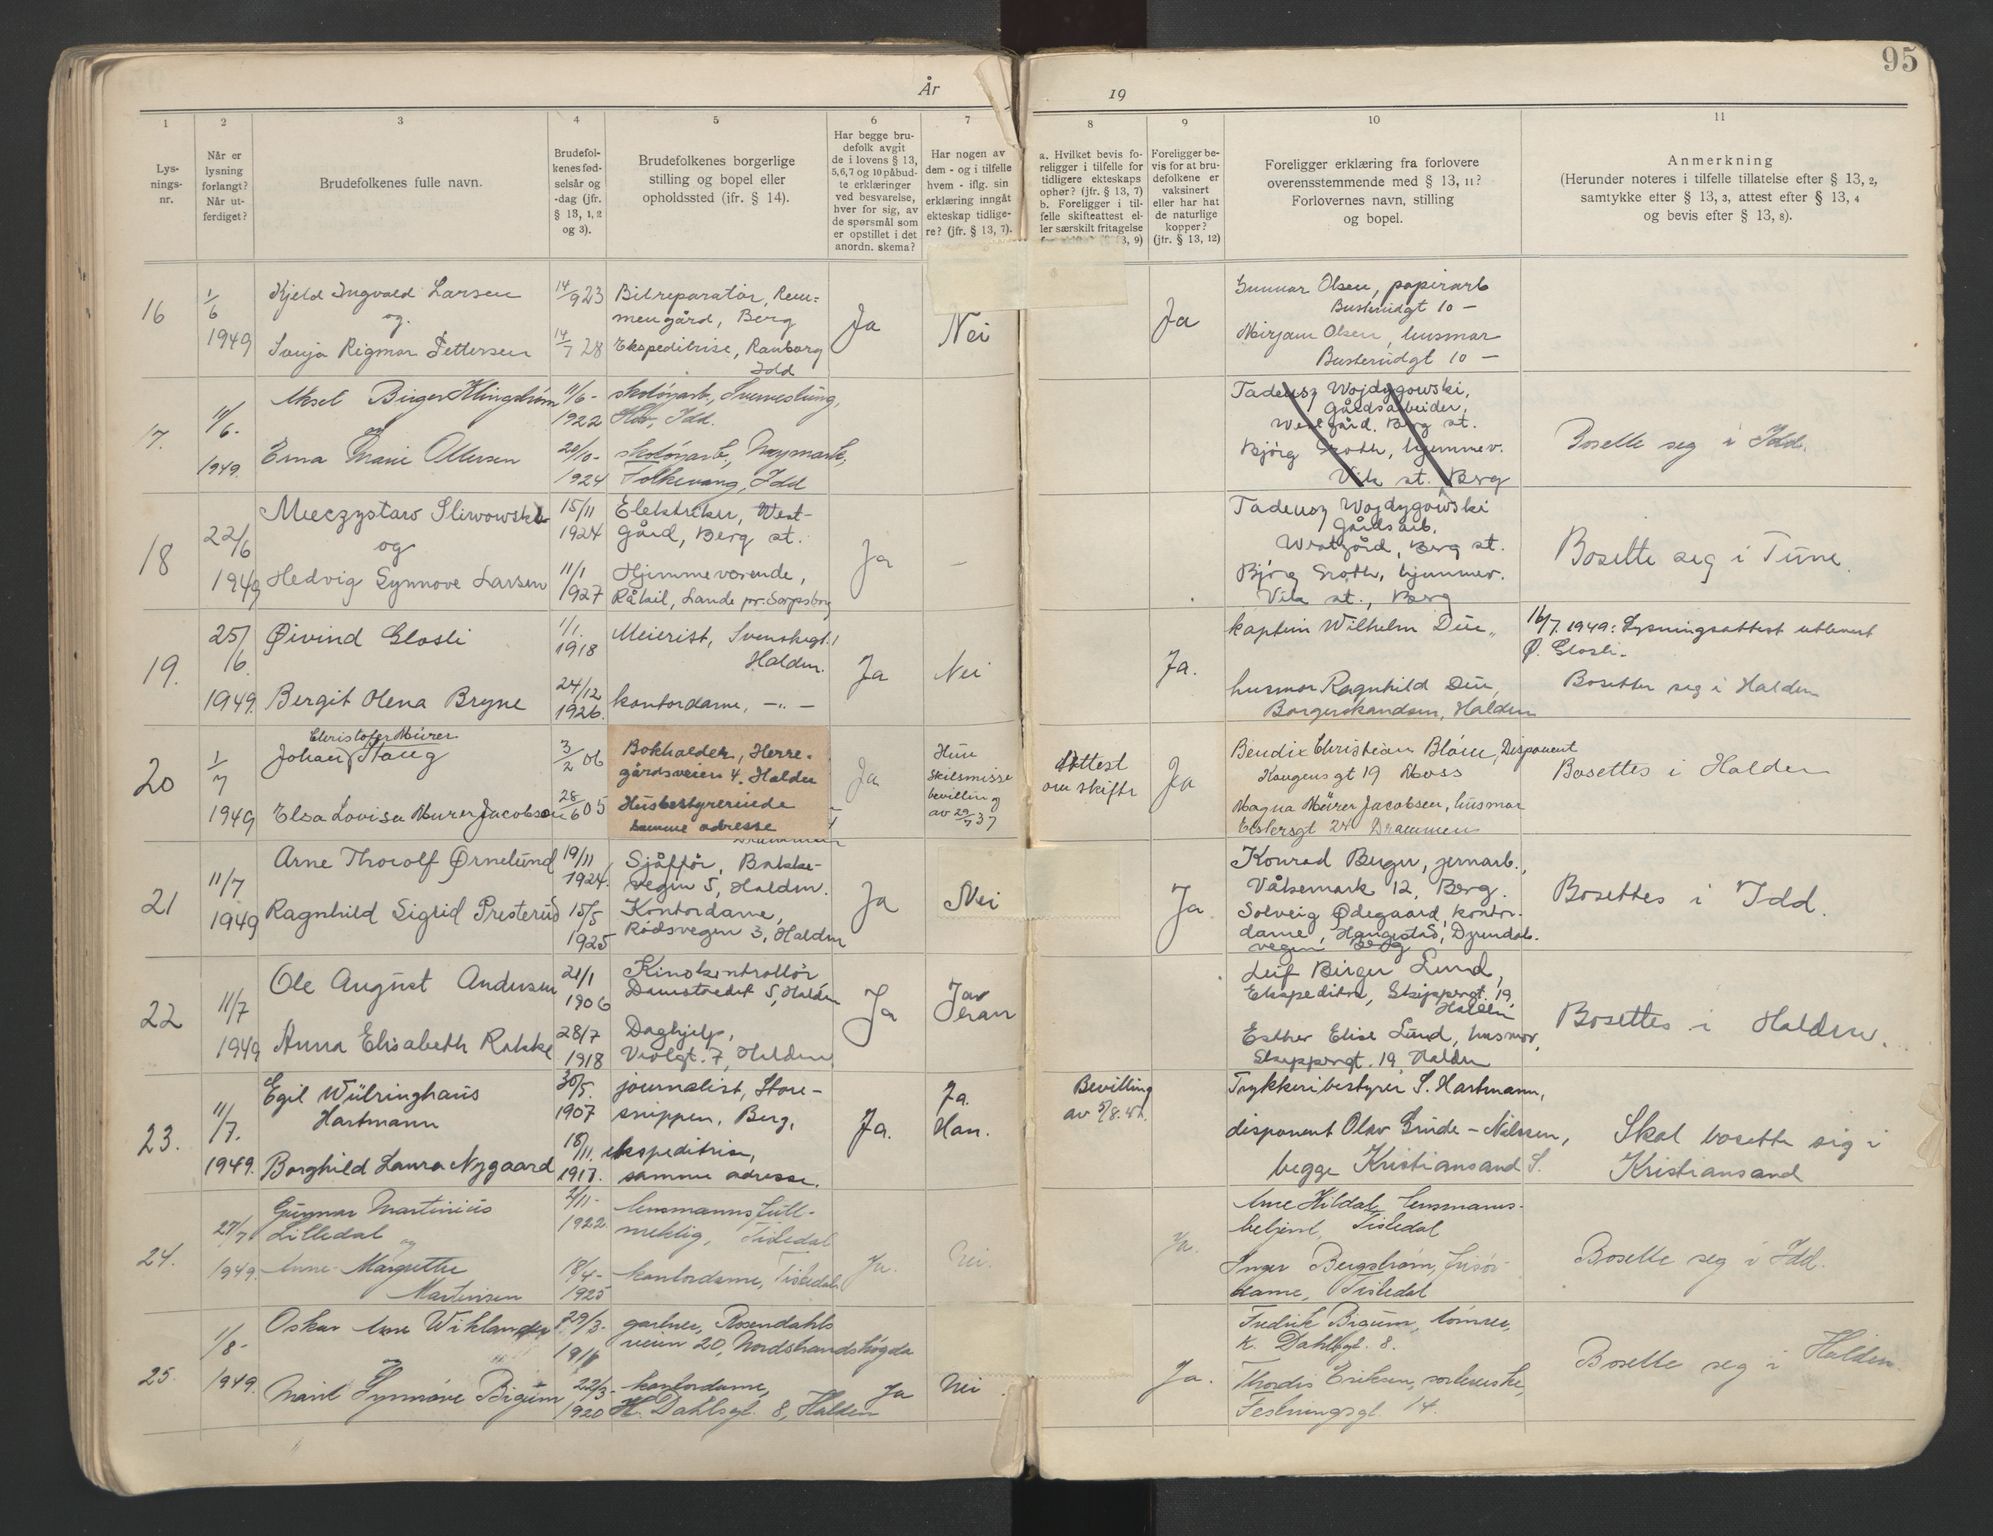 95
År
19
1
2
3
4
5
6
7
8
9
10
11
Lys-
nings-
nr.
Når er
lysning
forlangt?
Når ut-
ferdiget?
Brudefolkenes fulle navn.
Brudefol-
kenes fød-
selsår og
-dag (jfr.
§ 13, 1, 2
og 3).
Brudefolkenes borgerlige
stilling og bopel eller
opholdssted (jfr. § 14).
Har begge bru-
defolk avgit
de i lovens § 13,
5,6,7 og 10 påbud-
te erklæringer
ved besvarelse,
hver for sig, av
de spørsmål som
er opstillet i det
anordn. skema?
Har nogen av
dem - og i tilfelle
hvem - iflg. sin
erklæring inngåt
ekteskap tidlige-
re? (jfr. § 13, 7).
a. Hvilket bevis fo-
religger i tilfelle for
tidligere ekteskaps
ophør? (jfr. § 13, 7)
b. Foreligger i til-
felle skifteattest el-
ler særskilt fritagelse
3, 9)
Foreligger be-
vis for at bru-
defolkene er
vaksinert
eller har hat
de naturlige
kopper?
(jfr. § 13, 12)
Foreligger erklæring fra forlovere
overensstemmende med § 13, 11?
Forlovernes navn, stilling
og bopel.
Anmerkning
(Herunder noteres i tilfelle tillatelse efter § 13, 2,
samtykke efter § 13, 3, attest efter § 13, 4
og bevis efter § 13, 8).
16
1/6
1949
Kjeld Ingvald Larsen
og
Sonja Rigmor Pettersen
14/9 23
14/7 28
Bilreparatør, Rem-
mengård, Berg
Ekspeditrise, Ranborg
Idd
Ja
Nei
Ja
Gunnar Olsen, papirarb
Busterudgt 10 —
Mirjam Olsen, husmor
Busterudgt 10 —
17.
11/6-
1949.
Aksel Birger Klingstrøm
og
Erna Marie Ottersen
11/6-
1922
20/10-
1924
skotøyarb,
Idd.
skotøyarb,
Folkevang, Idd
Tadeusz Wojdygowski,
Gårdsarbeider,
Westgård, Berg st.
Bjørg Groth, hjemmev.
Vik st. Berg
Bosette seg i Idd.
18
22/6
1949
Mieczystaro Sliwowski
og
Hedvig Synnove Larsen
15/11
1924
11/1
1927
Elektriker, West-
gård, Berg st.
Hjemmeværende,
Råkil, Lande pr. Sarpsborg
Ja
—
Tadeusz Wojdygowski
Gårdsarb,
Westgård, Berg st.
Bjørg Groth, hjemmev.
Vik st., Berg
Bosette seg i Tune.
19.
25/6
1949.
Øivind Glosli
Bergit Olena Bryne
1/1.
1918
24/12
1926.
Meierist, Svenskegt.1
Halden.
kontordame, —„—
Ja
Nei
Ja.
kaptein Wilhelm Due,
husmor Ragnhild Due,
Borgerskansen, Halden
16/7. 1949: Lysningsattest utlevert
Ø. Glosli.
Bosetter seg i Halden
20
1/7
1949
Christofer Mürer
Johan Haug
Elsa Lovise Mürer Jacobsen
3/2 06
28/6 05
Bokholder, Herre-
gårdsveien 4, Halden
Husbestyrerinde
samme adresse
Drammen
Ja
Hun
skilsmisse
bevilling
av 29/7 37
Attest
om skifte
Ja
Bendix Christian Blom, Disponent
Kongens gt 19 Moss
Magna Mürer Jacobsen, husmor
Elstersgt 24 Drammen
Bosettes i Halden
21
11/7
1949
Arne Thorolf Ørnelund
Ragnhild Sigrid Presterud
19/11
1924.
15/5
1925
Sjåfør, Bakke-
vegen 5, Halden.
Kontordame,
Rødsvegen 3, Halden
Ja
Nei
Ja
Konrad Berger, jernarb.,
Våkemark 12, Berg.
Solveig Ødegaard, kontor-
dame, Haugestad,
vegen Berg
Bosettes i Idd.
22
11/7
1949
Ole August Andersen
Anna Elisabeth Rakke
21/1
1906
28/7
1918
Kinokontrollør
Damstredet 5, Halden
Daghjelp,
Violgt. 7, Halden
Ja
Ja
Leif Birger Lund,
Ekspeditør, Skippergt. 19,
Halden
Esther Elise Lund, husmor,
Skippergt. 19, Halden
Bosettes i Halden.
23.
11/7.
1949.
Egil Wülringhaus
Hartmann
Borghild Laura Nygaard
30/5.
1907
18/11.
1917.
journalist, Store-
snippen, Berg,
ekspeditrise,
samme adresse.
Ja.
Ja.
Han.
Bevilling
av 5/8. 42.
Trykkeribestyrer S. Hartmann,
disponent Olav Grude-Nilssen,
begge Kristiansand S.
Skal bosette sig i
Kristiansand
24.
27/7
1949.
Gunnar Martinius
Lilledal og
Anne-Margrethe
Martinsen
2/11-
1922.
18/4-
1925
lensmannsfull-
mektig, Tistedal
kontordame, Tistedal.
Ja.
Nei.
Ja.
Arne Hildal, lensmanns-
betjent, Tistedal
Inger Bergstrøm, frisør-
dame, Tistedal
Bosette seg i Idd.
25.
1/8-
1949.
Oskar Arne Wiklander
og
Marit Synnøve Bigum
29/3-
1916
22/3-
1920
gartner, Rosendahls
veien 20, Nordstrandshøgda
kontordame,
K. Dahlsgt. 8, Halden
Ja
Nei
Ja.
Fredrik Bigum, tømrer,
K. Dahlsgt. 8.
Thordis Eriksen,
Festningsgt. 14.
Bosette seg i Halden.